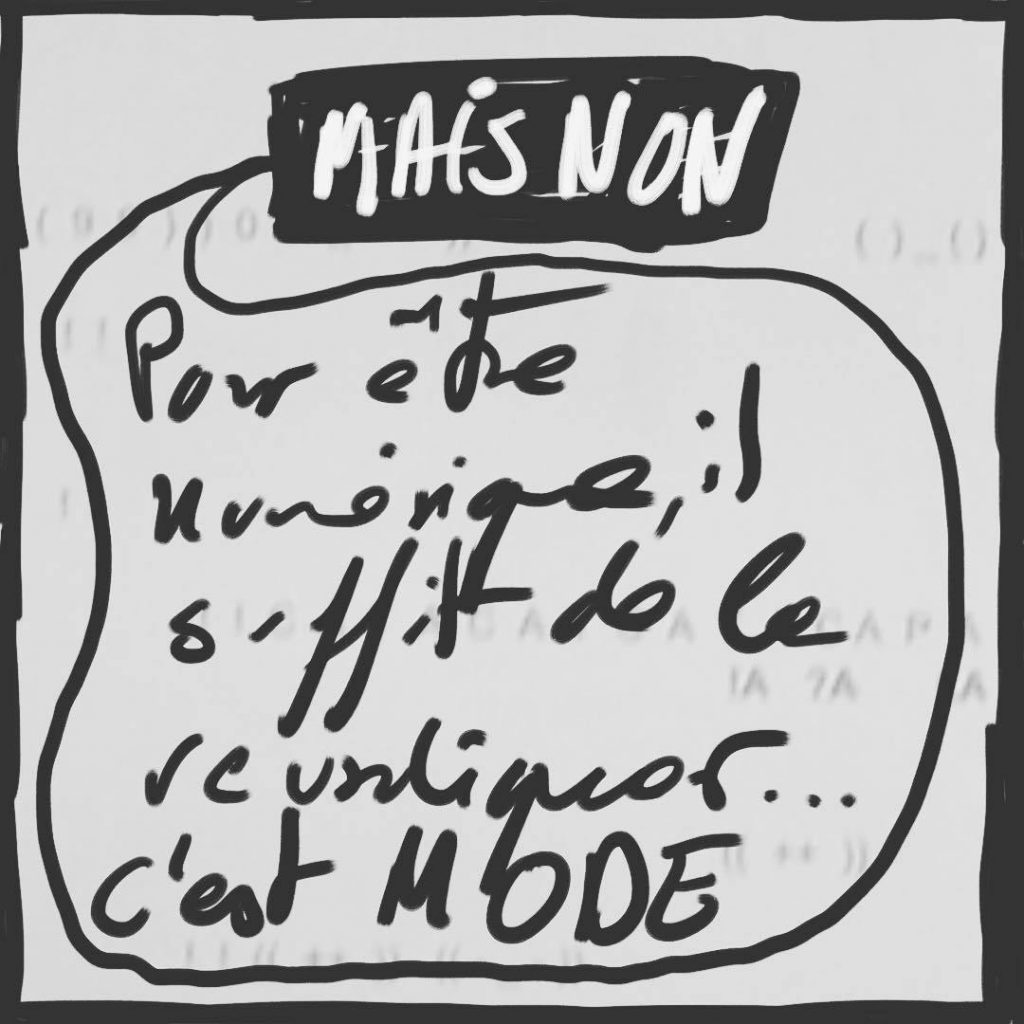 MAiS NON
( 9 9 ) ) 0
( ) _ ( )
! !
Pour être
numérique, il
!
suffit de le
!A ?A
revendiquer...
(( ++ ))
c'est MODE
! ! (( ++ )) ((